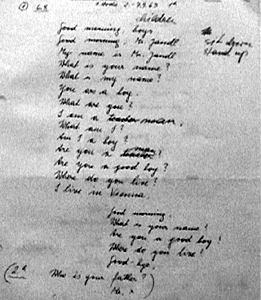 children
Good morning, boys
Good morning, Mr. Jandl
My name is Mr. Jandl
What is your name?
What is my name?
You are a boy.
What are you?
I am a teacher
What am I?
Am I a boy?
Are you a teacher?
Are you a good boy?
Where do you live?
I live in Vienna
Good morning.
What is your name?
Are you a good boy?
Where do you live?
Good-bye.
Who is your father?
Stand up